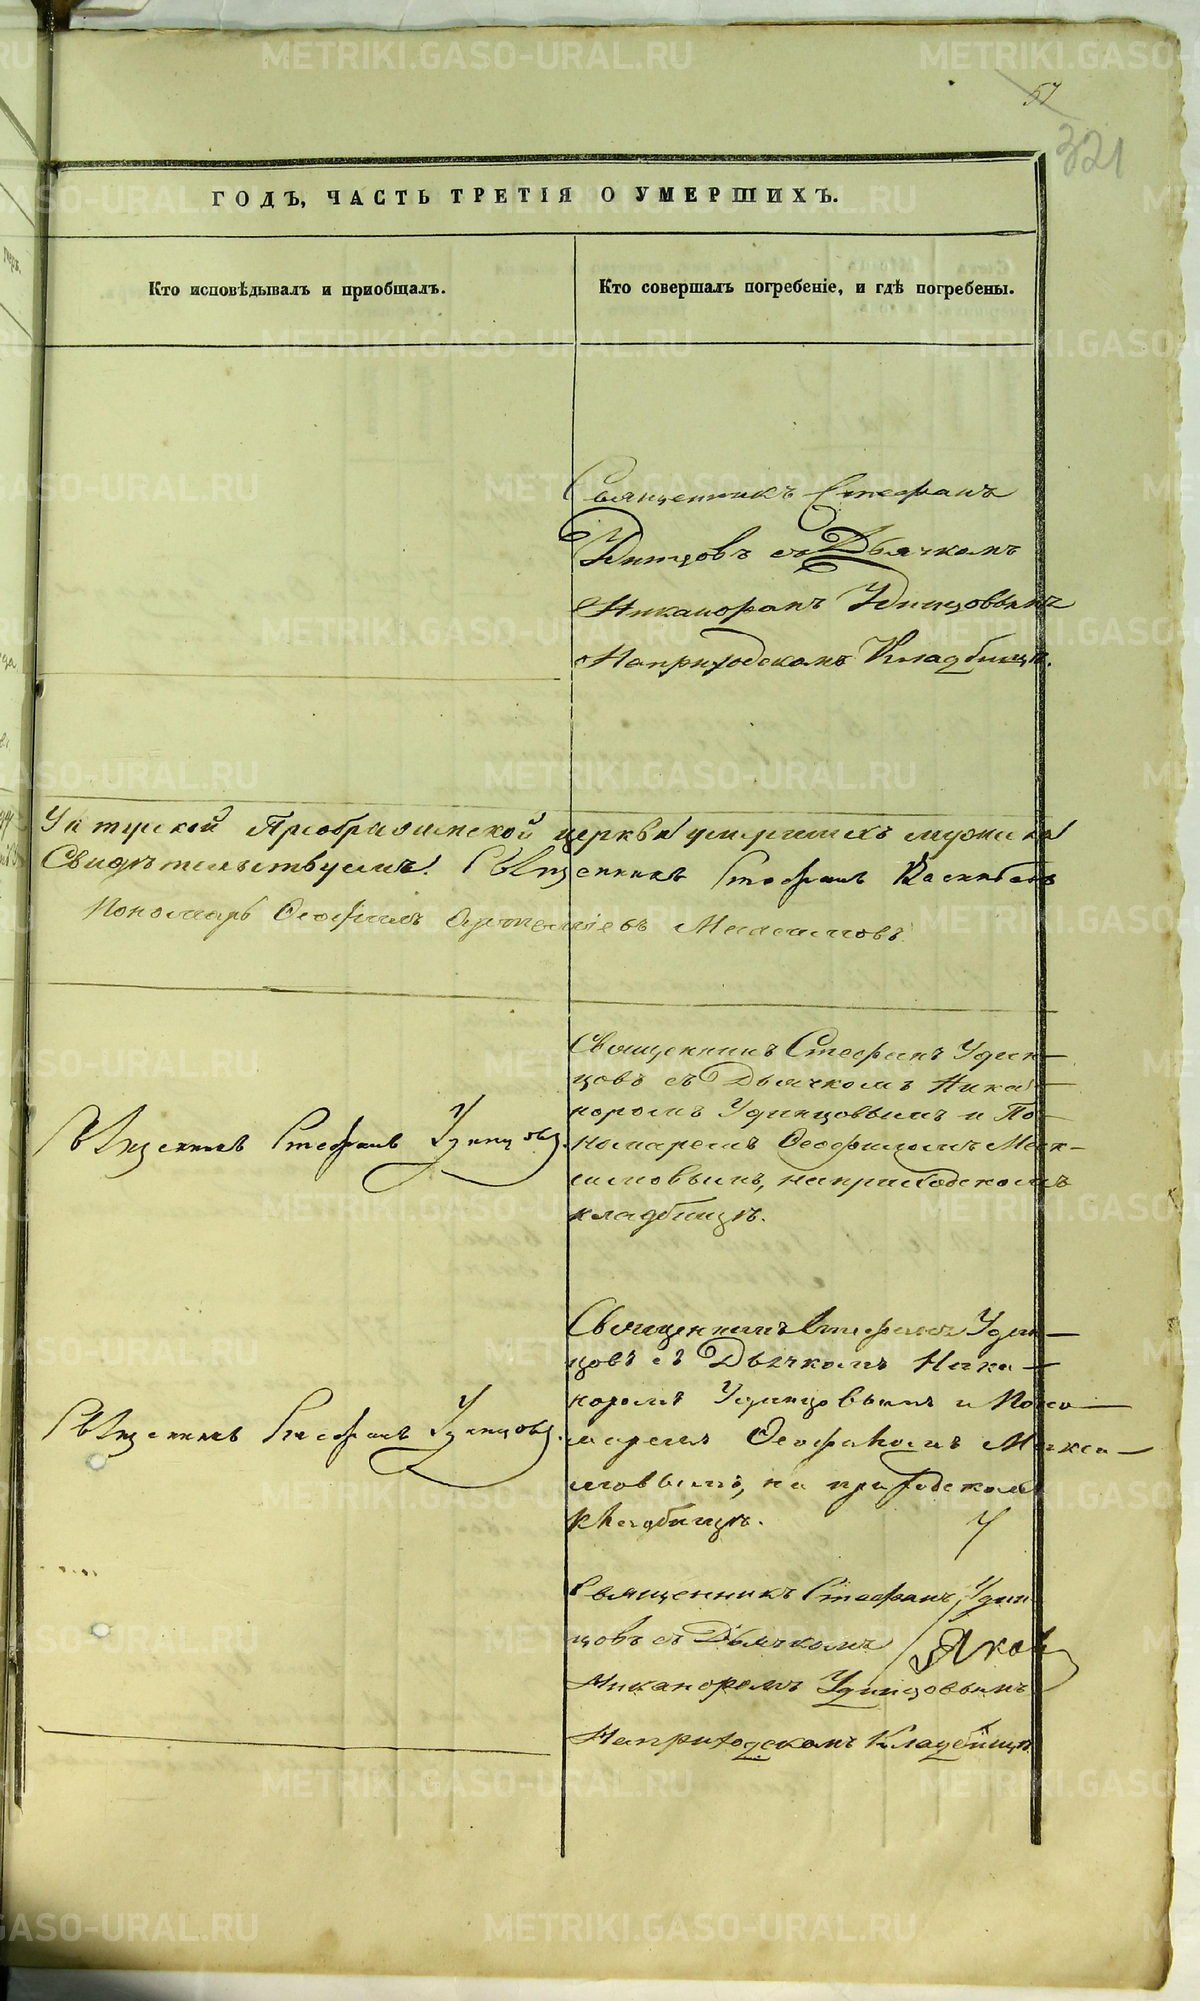 57
321
ГОДЪ, ЧАСТЬ ТРЕТІЯ О УМЕРШИХЪ.
Кто исповѣдывалъ и приобщалъ.
Кто совершалъ погребеніе, и гдѣ погребены.
Священникъ Стефанъ
Удинцовъ съ Дьячкомъ
Никаноромъ Удинцовымъ
На приходскомъ Кладбищѣ.
Преображенской церкви умершихъ мужеска
Свидѣтельствуемъ: Священникъ Стефанъ
Пономарь Ѳеофилъ Максимовъ
Священникъ Стефанъ Удин-
цовъ съ Дьячкомъ Ника-
норомъ Удинцовымъ и По-
номаремъ Ѳеофиломъ Мак-
симовымъ, на приходскомъ
кладбищѣ.
Священникъ Стефанъ Удинцовъ.
Священникъ Стефанъ Удин-
цовъ съ Дьячкомъ Ника-
норомъ Удинцовымъ и Поно-
маремъ Ѳеофиломъ Макси-
мовымъ, на приходскомъ
кладбищѣ.
Священникъ Стефанъ Удинцовъ.
Священникъ Стефанъ Удин
цовъ съ Дьячкомъ
Никаноромъ Удинцовымъ
На приходскомъ Кладбищѣ
METRIKI.GASO-URAL.RU